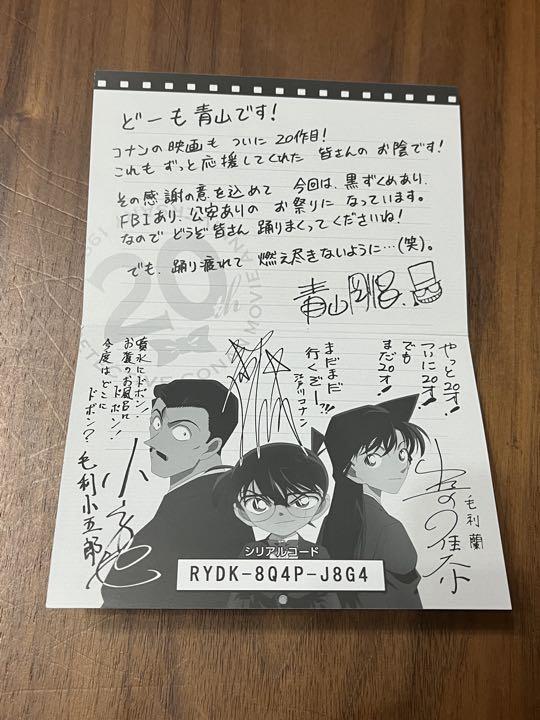 どーも青山です!
コナンの映画も ついに 20作目!
これも ずっと応援してくれた 皆さんの お陰です!
その感謝の意を込めて 今回は、黒ずくめあり、
FBIあり、公安ありの お祭りに なっています。
なので どうぞ皆さん 踊りまくってくださいね!
でも、踊り疲れて 燃え尽きないように…(笑)。
青山剛昌
20th
噴水にドボン!
お寺のお風呂に
ドボン!
今度はどこに
ドボン?
毛利小五郎
まだまだ
行くぞー!!
江戸川コナン
やっと20才!
ついに20才!
でも
まだ20才!
毛利 蘭
シリアルコード
RYDK-8Q4P-J8G4